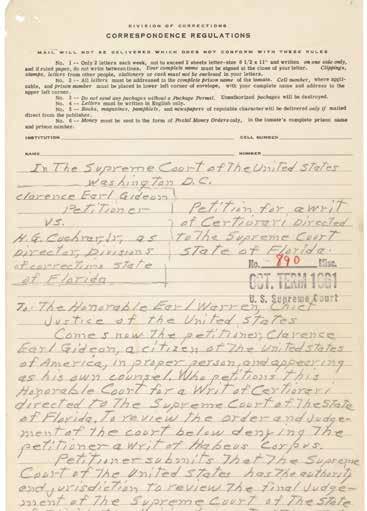 DIVISION OF CORRECTIONS
CORRESPONDENCE REGULATIONS
MAIL WILL NOT BE DELIVERED WHICH DOES NOT CONFORM WITH THESE RULES
No. 1 -- Only 2 letters each week, not to exceed 2 sheets letter-size 8 1/2 x 11" and written on one side only,
and if ruled paper, do not write between lines. Your complete name must be signed at the close of your letter. Clippings,
stamps, letters from other people, stationery or cash must not be enclosed in your letters.
No. 2 -- All letters must be addressed in the complete prison name of the inmate. Cell number, where appli-
cable, and prison number must be placed in lower left corner of envelope, with your complete name and address in the
upper left corner.
No. 3 -- Do not send any packages without a Package Permit. Unauthorized packages will be destroyed.
No. 4 -- Letters must be written in English only.
No. 5 -- Books, magazines, pamphlets, and newspapers of reputable character will be delivered only if mailed
direct from the publisher.
No. 6 -- Money must be sent in the form of Postal Money Orders only, in the inmate's complete prison name
and prison number.
INSTITUTION CELL NUMBER
NAME NUMBER
In The Supreme Court of The United States
Washington D.C.
Clarence Earl Gideon
Petitioner
vs.
H.G. Cochran, Jr, as
Director, Divisions
of corrections state
of Florida
Petition for a writ
of Certiorari Directed
to The Supreme Court
state of Florida.
No. 890 Misc.
OCT. TERM 1961
U. S. Supreme Court
To: The Honorable Earl Warren, Chief
Justice of the United States
Comes now The petitioner, Clarence
Earl Gideon, a citizen of The united states
of America, in proper person, and appearing
as his own counsel. Who petitions this
Honorable Court for a Writ of Certiorari
directed to The Supreme Court of The State
of Florida, To review the order and Judge-
ment of the court below denying The
petitioner a writ of Habeus Corpus.
Petitioner submits That The Supreme
Court of The United States has The authority
and jurisdiction to review the final Judge-
ment of The Supreme Court of The State